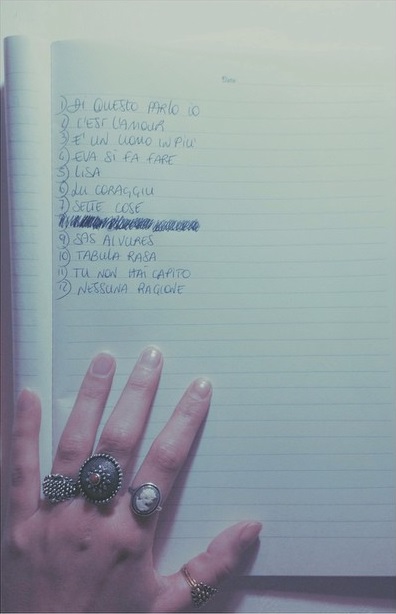 1) DI QUESTO PARLO IO
2) C'EST L'AMOUR
3) E' UN UOMO IN PIU'
4) EVA SI FA FARE
5) LISA
6) LU CORAGGIU
7) SETTE COSE
9) SAS ALVURES
10) TABULA RASA
11) TU NON HAI CAPITO
12) NESSUNA RAGIONE